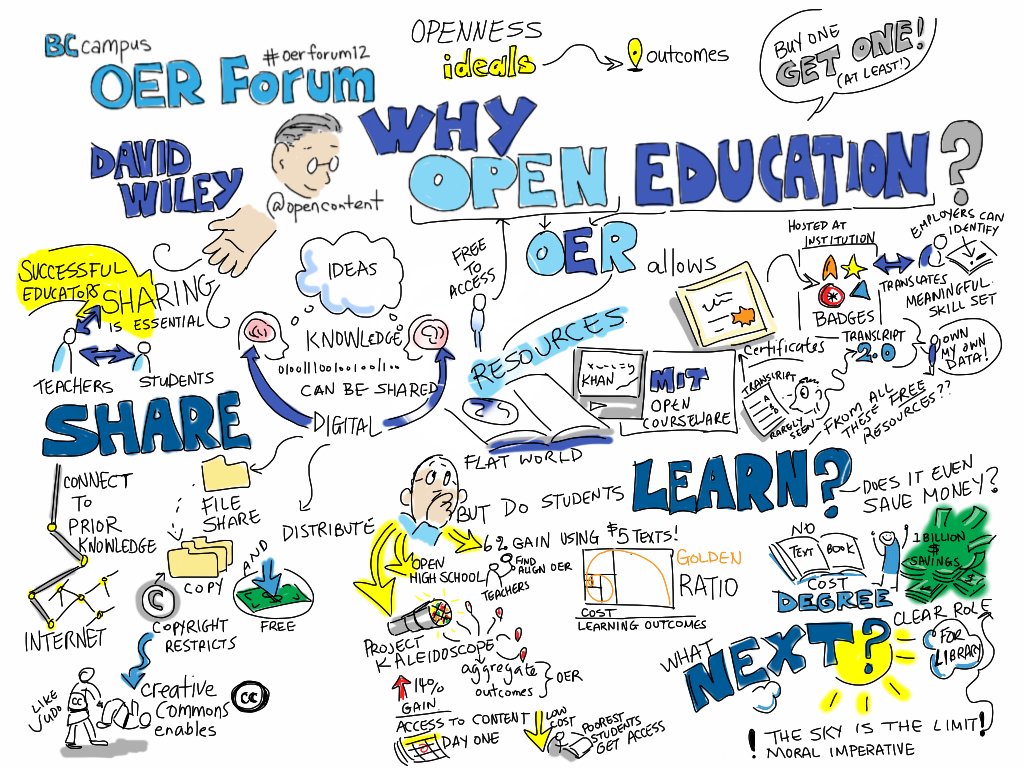 BCcampus
#oerforum12
OER Forum
OPENNESS
ideals
outcomes
BUY ONE
GET ONE!
(AT LEAST!)
DAVID
WILEY
@opencontent
WHY
OPEN EDUCATION?
SUCCESSFUL
EDUCATORS
SHARING
IS ESSENTIAL
TEACHERS
STUDENTS
IDEAS
KNOWLEDGE
CAN BE SHARED
DIGITAL
FREE
TO
ACCESS
OER
allows
RESOURCES
KHAN
MIT
OPEN
COURSEWARE
FLAT WORLD
HOSTED AT
INSTITUTION
BADGES
EMPLOYERS CAN
IDENTIFY
TRANSLATES
MEANINGFUL
SKILL SET
Certificates
TRANSCRIPT
2.0
OWN
MY OWN
DATA!
TRANSCRIPT
A
RARELY
SEEN
FROM ALL
THESE FREE
RESOURCES??
SHARE
CONNECT
TO
PRIOR
KNOWLEDGE
INTERNET
FILE
SHARE
COPY
©
COPYRIGHT
RESTRICTS
DISTRIBUTE
AND
FREE
LIKE
JUDO
CC
creative
commons
enables
CC
BUT DO STUDENTS
LEARN?
DOES IT EVEN
SAVE MONEY?
6% GAIN USING $5 TEXTS!
OPEN
HIGH SCHOOL
FIND
ALIGN OER
TEACHERS
PROJECT
KALEIDOSCOPE
aggregate
outcomes
OER
14%
GAIN
ACCESS TO CONTENT
DAY ONE
LOW
COST
POOREST
STUDENTS
GET ACCESS
GOLDEN
RATIO
COST
LEARNING OUTCOMES
NO
TEXT BOOK
COST
DEGREE
1 BILLION
$
SAVINGS
CLEAR ROLE
FOR
LIBRARY
WHAT
NEXT?
! THE SKY IS THE LIMIT!
MORAL IMPERATIVE